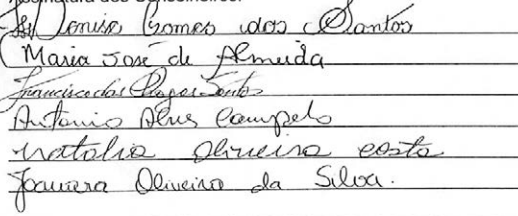 Assinatura dos Conselheiros:
Denise Gomes dos Santos
Maria José de Almeida
Francisca das Chagas Santos
Antonio Alves Campelo
Natalia Oliveira Costa
Oliveira da Silva.